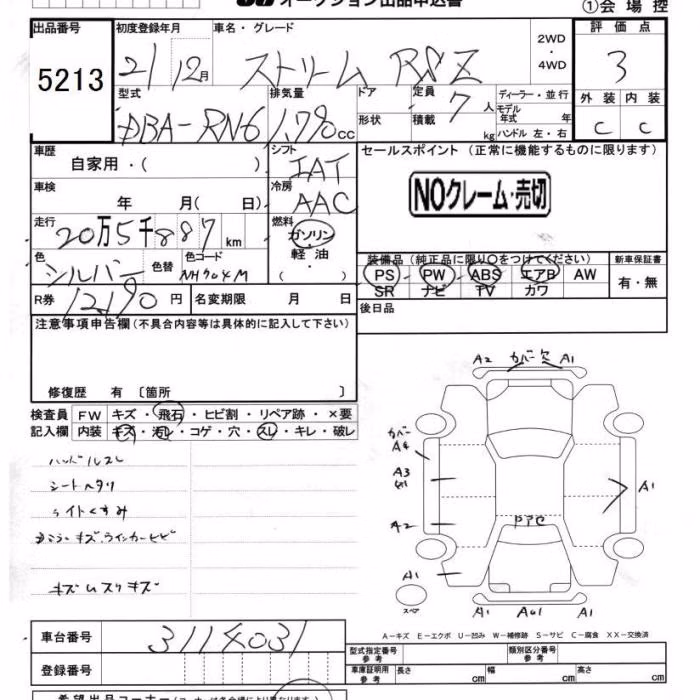 オークション出品申込書
①会場控
出品番号 初度登録年月 車名・グレード 評価点
5213 21/12月 ストリーム RSZ 2WD・4WD 3
型式 排気量 ドア 定員 7人 ディーラー・並行 外装 内装
DBA-RN6 1,790cc 形状 積載 kg モデル年式 年 C C
ハンドル 左・右
車歴 シフト セールスポイント(正常に機能するものに限ります)
自家用・( ) IAT
車検 冷房 NOクレーム・売切
年 月( 日) AAC
走行 燃料
20万5千887km ガソリン・軽油・( )
色 色替 色コード 装備品(純正品に限り○をつけてください) 新車保証書
シルバー NH704M PS PW ABS エアB AW 有・無
SR ナビ TV カワ
R券 12,190円 名変期限 月 日 後日品
注意事項申告欄(不具合内容等は具体的に記入して下さい)
修復歴 有 〔箇所 〕
検査員 FW キズ・飛石・ヒビ割・リペア跡・×要
記入欄 内装 キズ・汚レ・コゲ・穴・スレ・キレ・破レ
ハンドルスレ
シートヘタリ
ライトくすみ
キズ
A2 カバー欠 A1
カバー
A4
A3
A1
A2
A1
A1 A1
スペア
A-キズ E-エクボ U-凹み W-補修跡 S-サビ C-腐食 XX-交換済
車台番号 3114031
型式指定番号 参考 類別区分番号 参考
登録番号 車庫証明用 参考 長さ cm 幅 cm 高さ cm
希望出品コーナー